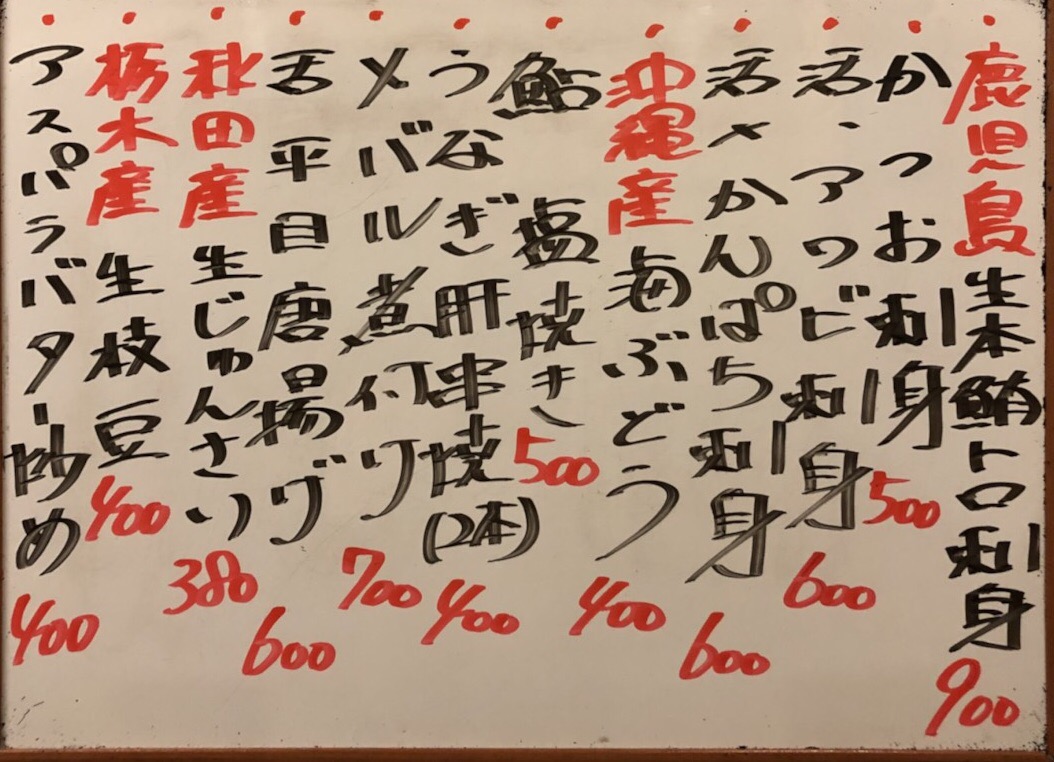 ・鹿児島生本鮪トロ刺身 900
・かつお刺身 500
・活、アワビ刺身 600
・活〆かんぱち刺身 600
・沖縄産海ぶどう 400
・鮎塩焼き 500
・うなぎ肝串焼(2本) 400
・メバル煮付け 700
・活平目唐揚げ 600
・秋田産生じゅんさい 380
・栃木産生枝豆 400
・アスパラバター炒め 400